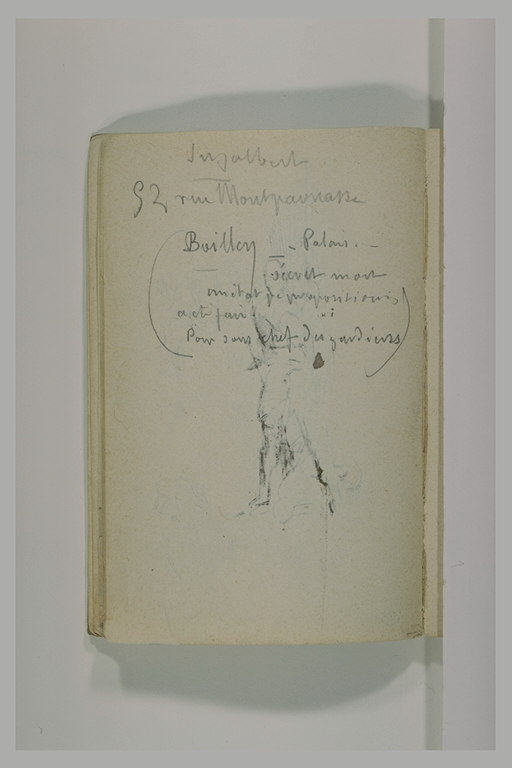 Injalbert
52 rue Montparnasse
Boilley - Palais. -
décret mort
un état de propositions
a été fait
Pour sous chef des gardiens